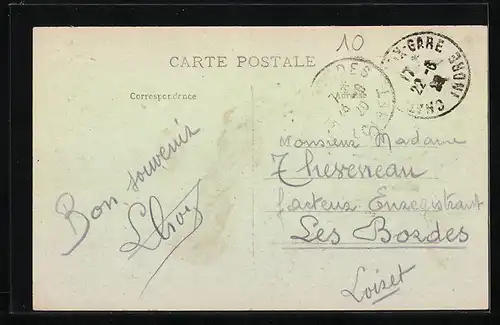 10
CARTE POSTALE
Correspondance
Bon souvenir
Monsieur Madame
Thevereau
facteur Enregistrant
Les Bordes
Loiret